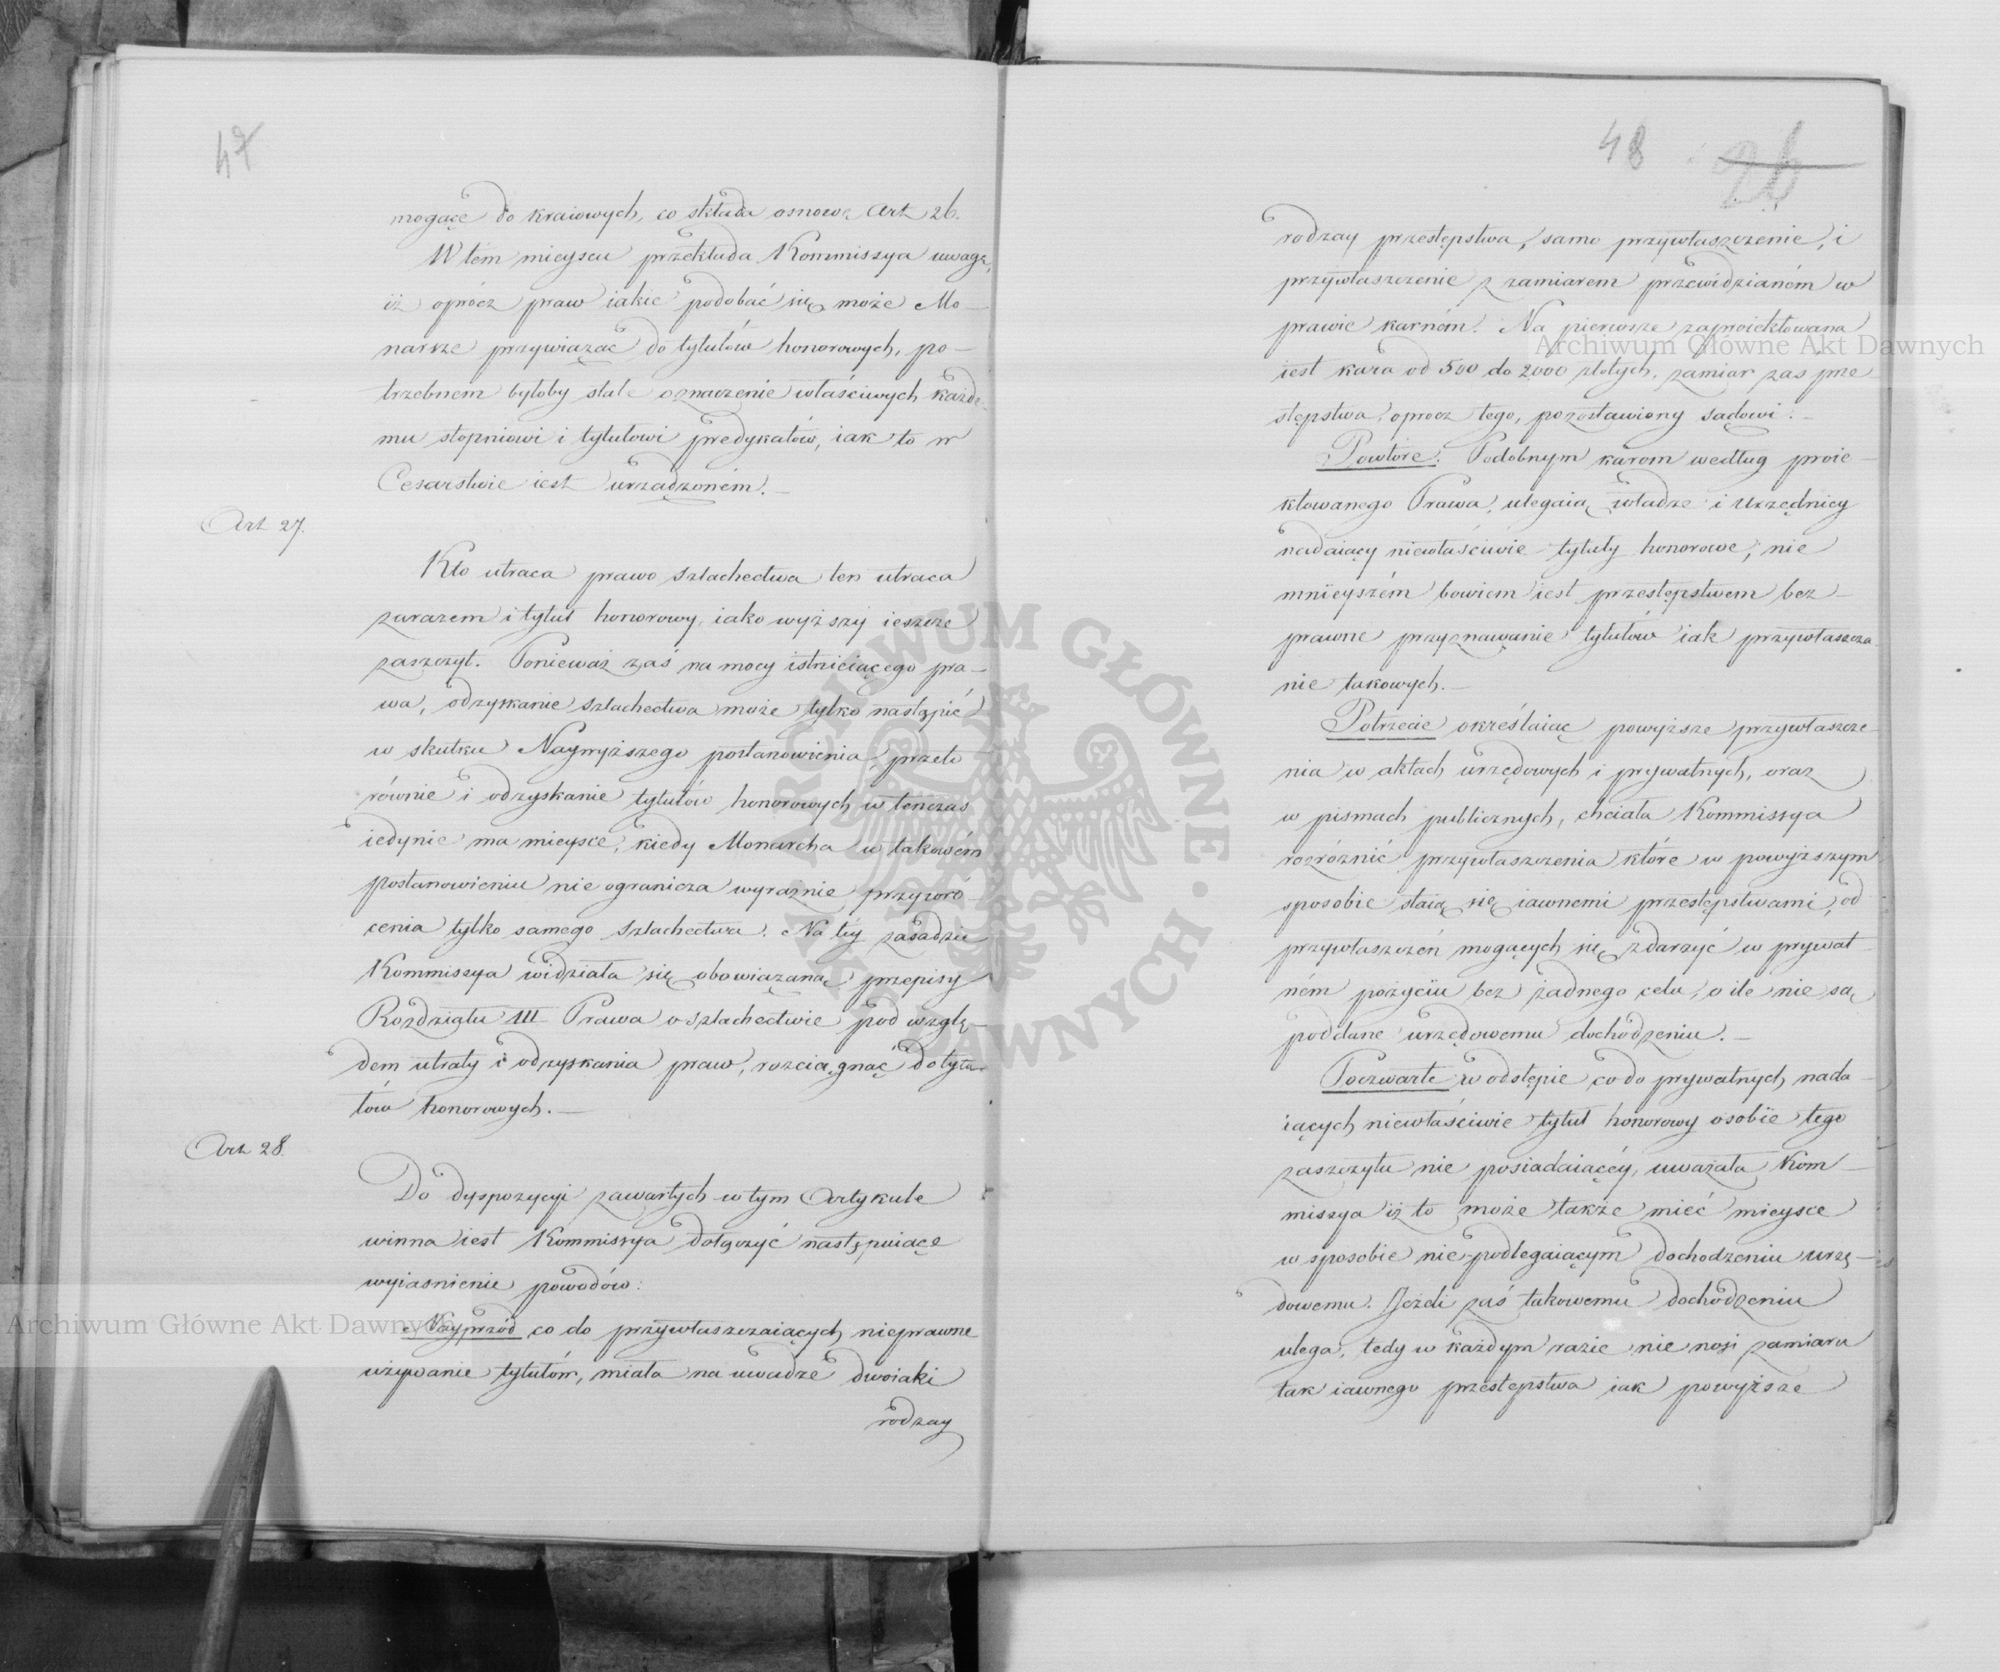 47
mogące do kraiowych, co składa osnowę Art 26.
W tém mieyscu przekłada Kommissya uwagę,
iż oprócz praw iakie podobać się może Mo-
narsze przywiązać do tytułów honorowych, po-
trzebnem byłoby stałe oznaczenie właściwych każde-
mu stopniowi i tytułowi predykatów, iak to w
Cesarstwie iest urządzoném.-
Art 27.
Kto utraca prawo szlachectwa ten utraca
zarazem i tytuł honorowy, iako wyższy ieszcze
zaszczyt. Ponieważ zaś na mocy istnieiącego pra-
wa, odzyskanie szlachectwa może tylko nastąpić
w skutku Naywyższego postanowienia, przeto
równie i odzyskanie tytułów honorowych w tenczas
iedynie ma mieysce, kiedy Monarcha w takowém
postanowieniu nie ogranicza wyraźnie przywró-
cenia tylko samego szlachectwa. Na téy zasadzie
Kommissya widziała się obowiązaną przepisy
Rozdziału III Prawa o szlachectwie pod wzglę-
dem utraty i odzyskania praw, rozciągnąć do tytu-
łów honorowych.-
Art 28.
Do dyspozycyi zawartych w tym Artykule
winna iest Kommissya dołączyć następuiące
wyiasnienie powodów:
Nayprzód co do przywłaszczaiących nieprawne
używanie tytułów, miała na uwadze dwoiaki
rodzay
48 26
rodzay przestępstwa, samo przywłaszczenie, i
przywłaszczenie z zamiarem przewidzianém w
prawie karném. Na pierwsze zaproiektowana
iest kara od 500 do 2000 złotych, zamiar zas prze
stępstwa oprocz tego, pozostawiony sądowi:-
Powtóre. Podobnym karom według proie-
ktowanego Prawa, ulegaią władze i Urzędnicy
nadaiący niewłaściwie tytuły honorowe, nie
mnieyszém bowiem iest przestępstwem bez-
prawne przyznawanie tytułów iak przywłaszcza
nie takowych.-
Potrzecie określaiąc powyższe przywłaszcze-
nia w aktach urzędowych i prywatnych, oraz
w pismach publicznych, chciała Kommissya
rozróżnić przywłaszczenia które w powyższym
sposobie staią się iawnemi przestępstwami, od
przywłaszczeń mogących się zdarzyć w prywat-
ném pożyciu bez żadnego celu, o ile nie są
poddane urzędowemu dochodzeniu.-
Poczwarte w odstępie co do prywatnych nada-
iących niewłaściwie tytuł honorowy osobie tego
zaszczytu nie posiadaiącéy, uważała Kom-
missya iż to może także mieć mieysce
w sposobie nie podlegaiącym dochodzeniu urzę-
dowemu. Jeżeli zaś takowemu dochodzeniu
ulega, tedy w każdym razie nie nosi zamiaru
tak iawnego przestępstwa iak powyższe
Archiwum Główne Akt Dawnych
Archiwum Główne Akt Dawnych
ARCHIWUM GŁÓWNE AKT DAWNYCH